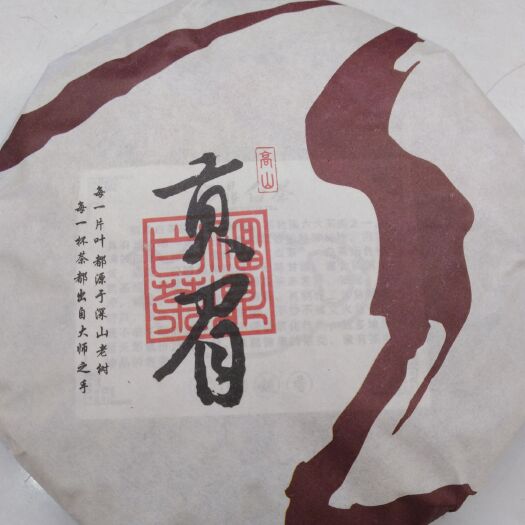 高山
贡眉
福鼎
白茶
每一片叶都源于深山老树
每一杯茶都出自大师之手